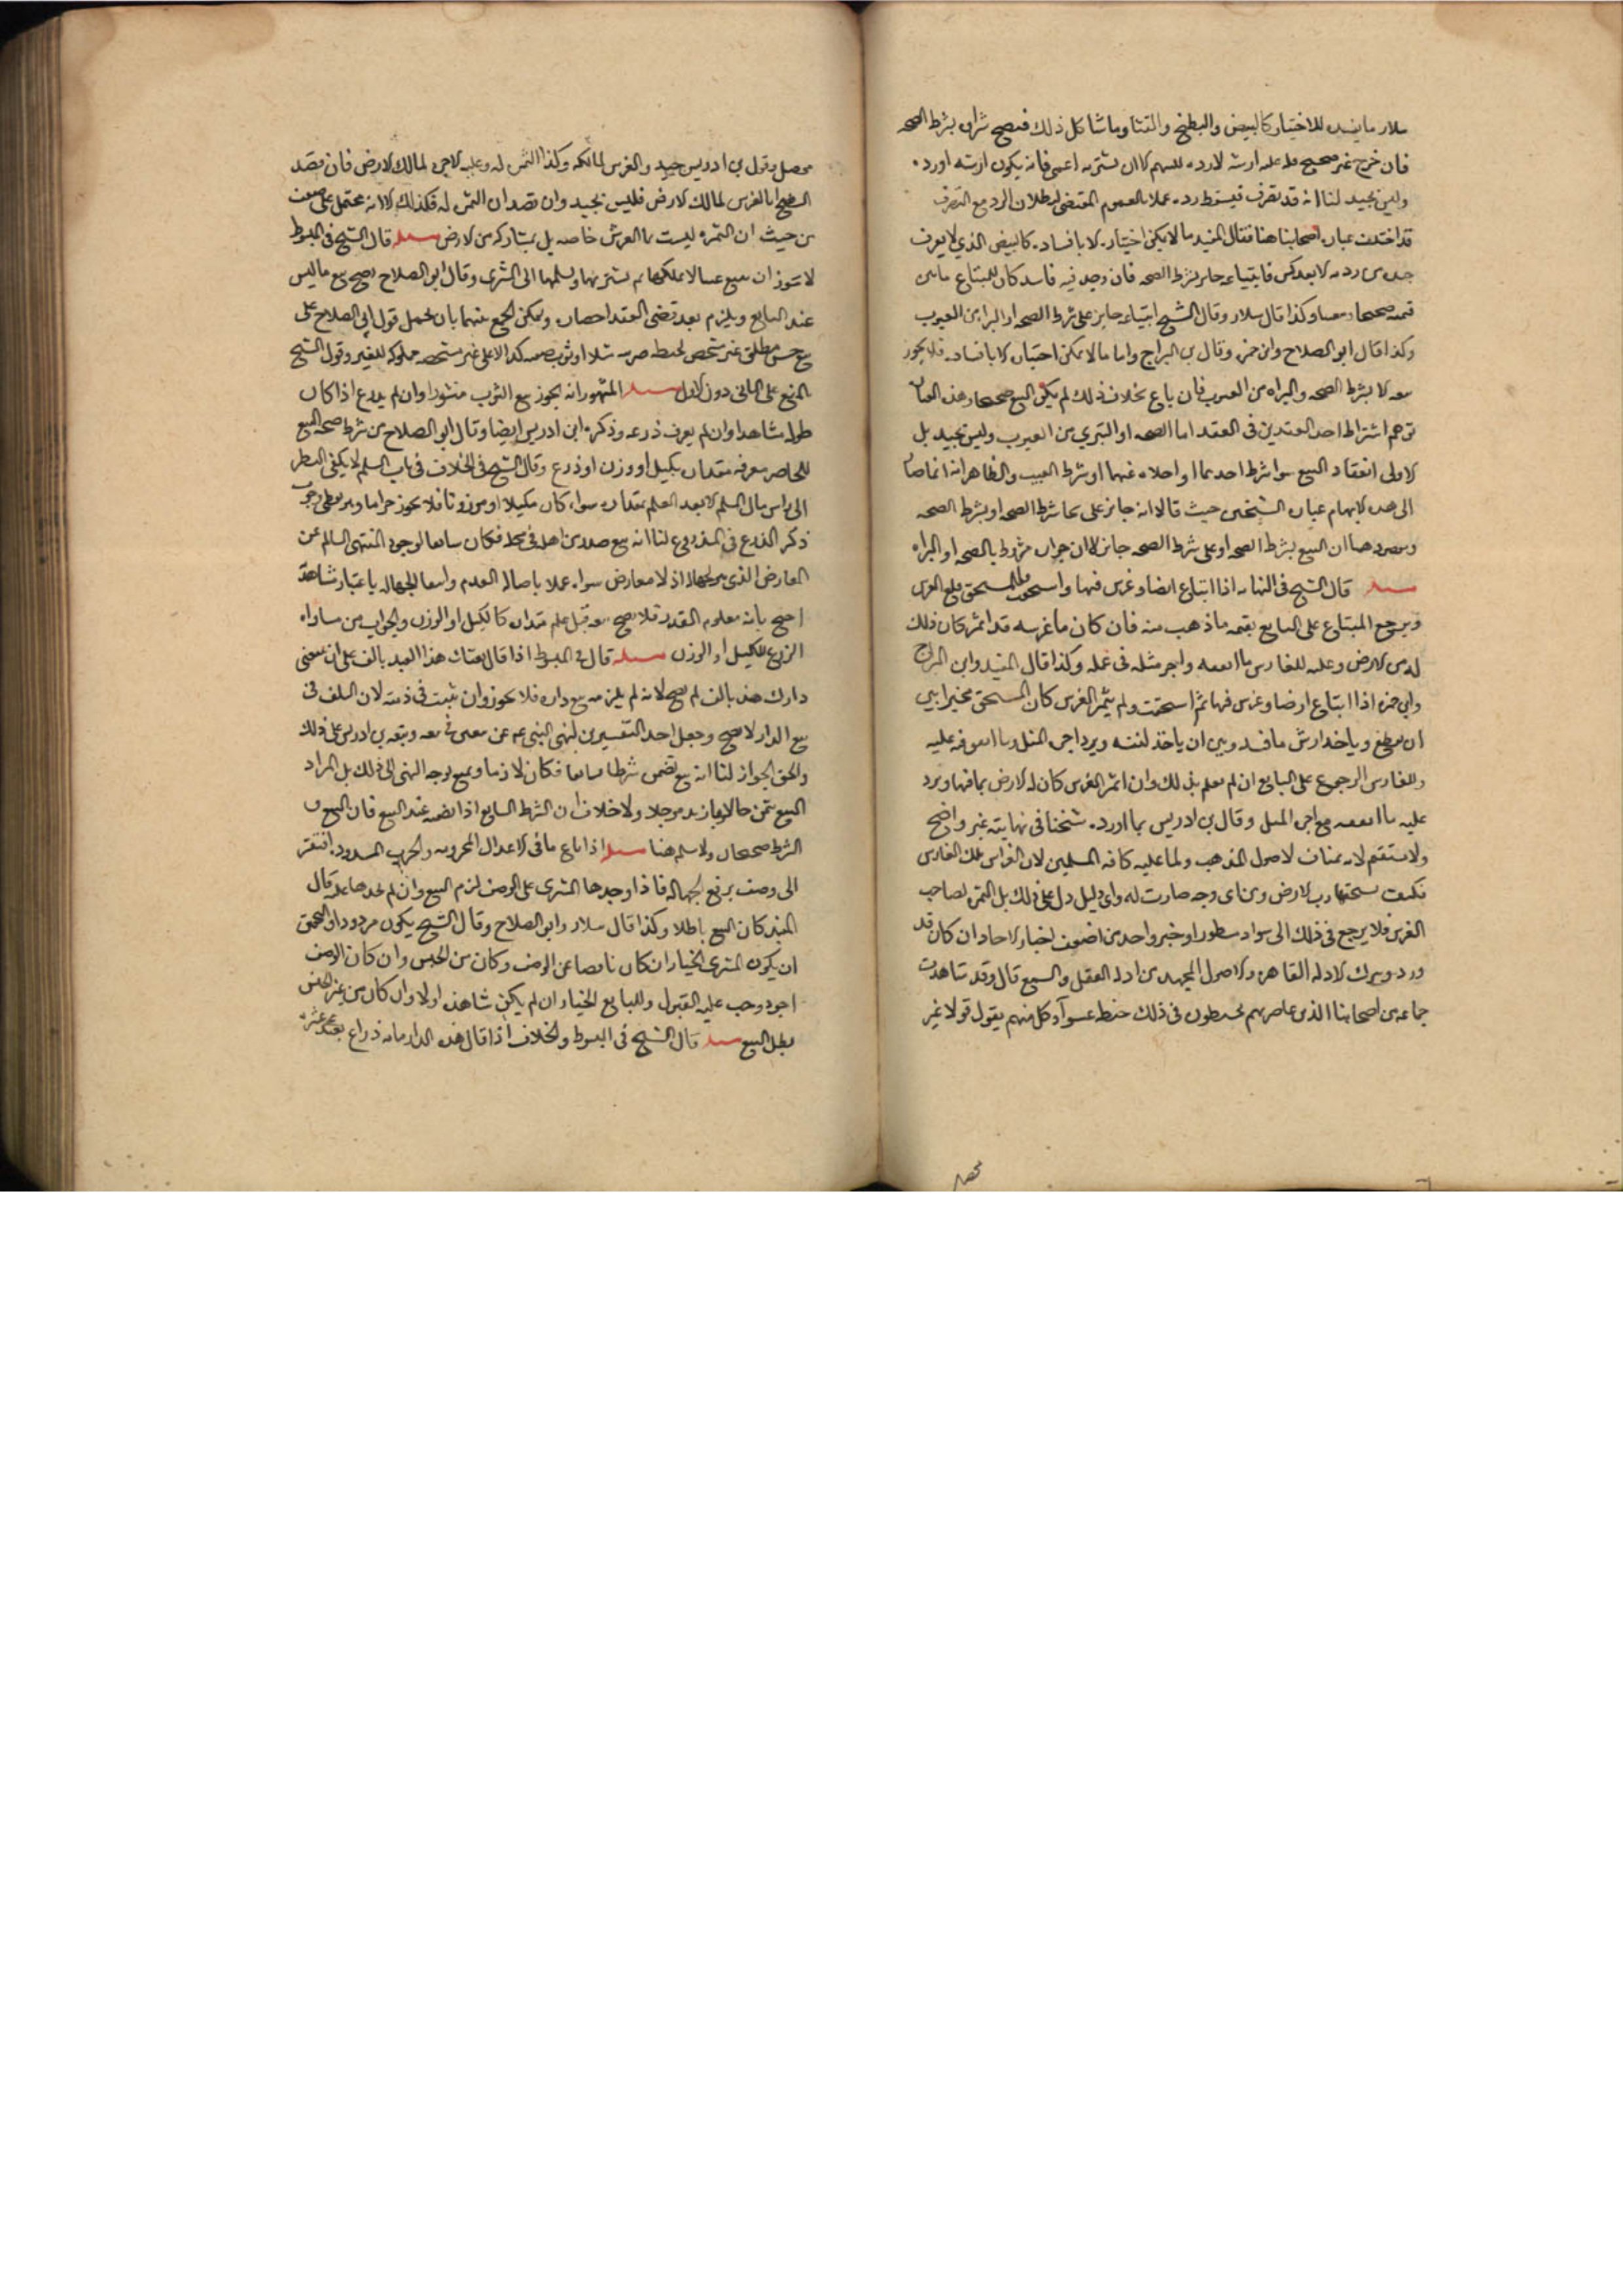 سلار ما يفسده للاختبار كالبيض والبطيخ والقثا وما شاكل ذلك فيصح شراه بشرط الصحه
فان خرج غير صحيح فله ارشه لا رده اللهم الا ان يشتريه اعمى فانه يكون ارشه او رده
وليس بجيد لنا انه قد تصرف فيسقط رده عملا بالعموم المقتضى لبطلان الرد مع التصرف
قد اختلف عباره اصحابنا هنا فقال المفيد ما لا يمكن اختباره الا بافساده كالبيض الذي لا يعرف
جيده من رديه الا بعد كسره فابتياعه جايز بشرط الصحه فان وجد فيه فاسد كان للمبتاع ما بين
قيمته صحيحا ومعيبا وكذا قال سلار وقال الشيخ ابتياعه جايز على شرط الصحه او البراءه من العيوب
وكذا قال ابو الصلاح وابن حمزه وقال بن البراج واما ما لا يمكن اختباره الا بافساده فلا يجوز
بيعه الا بشرط الصحه والبراه من العيوب فان باع بخلاف ذلك لم يكن البيع صحيحا وهذه العباره
توهم اشتراط احد القيدين فى العقد اما الصحه او التبري من العيوب وليس بجيد بل
الاولى انعقاد البيع سوا شرط احدهما او اخلاه عنهما او شرط العيب والظاهر انه انما صار
الى هذه لايهام عباره الشيخين حيث قالا انه جايز على شرط الصحه او بشرط الصحه
ومقصودهما ان البيع بشرط الصحه او على شرط الصحه جايز لا ان جوازه مشروط بالصحه او البراه
مسله قال الشيخ فى النهايه اذا ابتاع ارضا وغرس فيها واستحقت للمستحق قلع الغرس
ويرجع المبتاع على البايع بقيمه ما ذهب منه فان كان ما غرسه قد اثمر كان ذلك
لرب الارض وعليه للغارس ما انفقه واجر مثله فى عمله وكذا قال المفيد وابن البراج
وابن حمزه اذا ابتاع ارضا وغرس فيها ثم استحقت ولم يثمر الغرس كان المستحق مخيرا بين
ان يقلع وياخذ ارش ما فسد وبين ان ياخذ لنفسه ويرد اجره المثل وما انفق فيه عليه
وللغارس الرجوع على البايع ان لم يعلم بذلك وان اثمر الغرس كان لرب الارض بما فيها ويرد
عليه ما انفقه مع اجره المثل وقال بن ادريس ما اورده شيخنا فى نهايته غير واضح
ولا مستقيم لانه مناف لاصول المذهب ولما عليه كافه المسلمين لان الغراس ملك الغارس
فكيف يستحقها رب الارض ومن اى وجه صارت له واى دليل دل على ذلك بل الثمره لصاحب
الغرس فلا يرجع فى ذلك الى سواد سطور او خبر واحد من اضعف اخبار الاحاد ان كان قد
ورد ويترك الادله القاهره والاصول الممهده من ادله العقل والسمع قال وقد شاهدت
جماعه من اصحابنا الذين عاصرتهم يخبطون فى ذلك خبط عشوا وكل منهم يقول قولا غير
محصل
محصل وقول بن ادريس جيد والغرس لمالكه وكذا الثمره له وعليه الاجره لمالك الارض فان قصد
الشيخ ان الغرس لمالك الارض فليس بجيد وان قصد ان الثمره له فكذلك الا انه محتمل على ضعف
من حيث ان الثمره ليست نما الغرس خاصه بل بمشاركه من الارض مسله قال الشيخ فى المبسوط
لا يجوز ان يبيع عينا لا يملكها ثم يشتريها ويسلمها الى المشترى وقال ابو الصلاح يصح بيع ما ليس
عند البايع ويلزم بعد تقضى العقد احضاره ويمكن الجمع بينهما بان يحمل قول ابى الصلاح على
بيع جنس مطلق غير مشخص لحنطه ... مثلا او ثوب بصفه كذا لا على غير مشخصه مملوكه للغير وقول الشيخ
بالمنع على الثانى دون الاول مسله المشهور انه يجوز بيع الثوب منشورا وان لم يذرع اذا كان
طوله مشاهدا وان لم يعرف ذرعه وذكره ابن ادريس ايضا وقال ابو الصلاح من شرط صحه البيع
للحاضر معرفه مقداره بكيل او وزن او ذرع وقال الشيخ فى الخلاف فى باب السلم لا يكفى النظر
الى راس مال السلم الا بعد العلم بمقداره سواء كان مكيلا او موزونا فلا يجوز جزافا وهو يعطى وجوب
ذكر الذرع فى المذروع لنا انه بيع صدر من اهله فى محله فكان سايغا لوجود المقتضى السالم عن
المعارض الذى هو الجهاله اذ لا معارض سواه عملا باصاله العدم وانتفا الجهاله باعتبار مشاهدته
احتج بانه معلوم القدر فلا يصح بيعه قبل علم مقداره كالكيل او الوزن والجواب من مساواه
الذرع للكيل او الوزن مسله قال فى المبسوط اذا قال بعتك هذا العبد بالف على ان تبيعنى
دارك هذه بالف لم يصح لانه لم يلزمه بيع داره فلا يجوز وان تثبت فى ذمته لان السلف فى
بيع الدار لا يصح وجعل احد التفسيرين لنهى النبى عم عن بيعين فى بيعه وتبعه بن ادريس على ذلك
والحق الجواز لنا انه بيع تضمن شرطا سايغا فكان لازما ونمنع توجه النهى الى ذلك بل المراد
البيع بثمن حالا وبازيد موجلا ولا خلاف ان الشرط السايغ اذا تضمنه عقد البيع فان البيع و
الشرط صحيحان ولاسلم هنا مسله اذا باع ما فى الاعدال المحزومه والجرب المسدوده افتقر
الى وصف يرفع الجهاله فاذا وجدها المشترى على الوصف لزم البيع وان لم يجدها عليه قال
المفيد كان البيع باطلا وكذا قال سلار وابو الصلاح وقال الشيخ يكون مردودا والتحقيق
ان يكون للمشترى الخيار ان كان ناقصا عن الوصف وكان من الجنس وان كان الوصف
اجود وجب عليه القبول وللبايع الخيار ان لم يكن شاهده اولا وان كان من غير الجنس
بطل البيع مسله قال الشيخ فى المبسوط والخلاف اذا قال هذه الدار مايه ذراع بعتك عشره